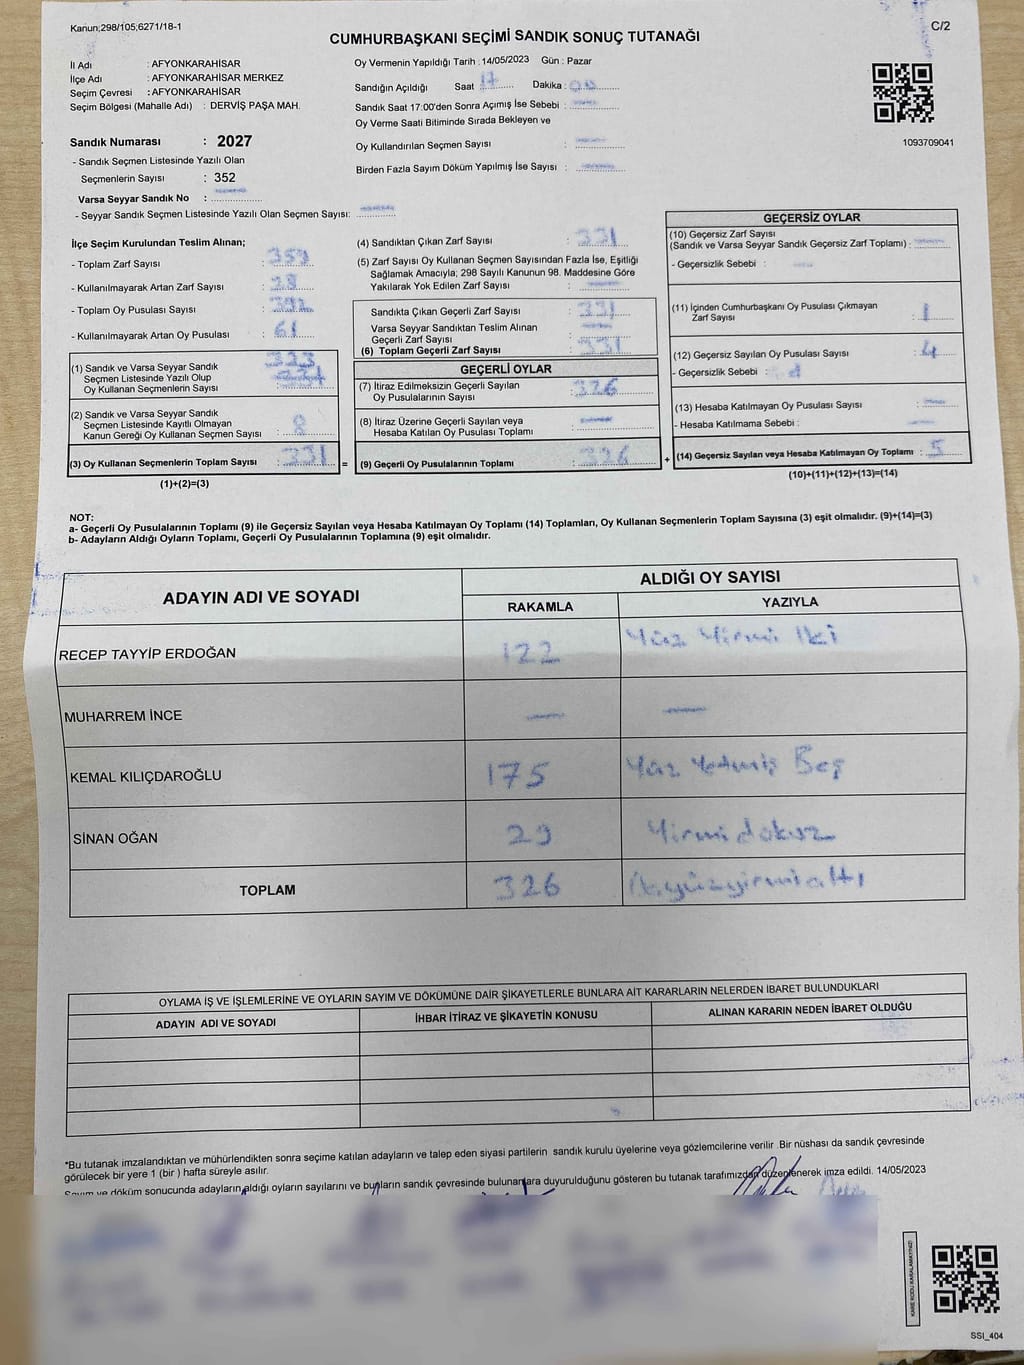 Kanun;298/105;6271/18-1
C/2
CUMHURBAŞKANI SEÇİMİ SANDIK SONUÇ TUTANAĞI
İl Adı : AFYONKARAHİSAR
İlçe Adı : AFYONKARAHİSAR MERKEZ
Seçim Çevresi : AFYONKARAHİSAR
Seçim Bölgesi (Mahalle Adı) : DERVİŞ PAŞA MAH.
Sandık Numarası : 2027
- Sandık Seçmen Listesinde Yazılı Olan
Seçmenlerin Sayısı : 352
Varsa Seyyar Sandık No :
- Seyyar Sandık Seçmen Listesinde Yazılı Olan Seçmen Sayısı:
Oy Vermenin Yapıldığı Tarih : 14/05/2023 Gün : Pazar
Sandığın Açıldığı Saat 17 Dakika : 00
Sandık Saat 17:00'den Sonra Açımış İse Sebebi :
Oy Verme Saati Bitiminde Sırada Bekleyen ve
Oy Kullandırılan Seçmen Sayısı :
Birden Fazla Sayım Döküm Yapılmış İse Sayısı :
1093709041
İlçe Seçim Kurulundan Teslim Alınan;
- Toplam Zarf Sayısı :
- Kullanılmayarak Artan Zarf Sayısı : 28
- Toplam Oy Pusulası Sayısı : 392
- Kullanılmayarak Artan Oy Pusulası : 61
(1) Sandık ve Varsa Seyyar Sandık
Seçmen Listesinde Yazılı Olup
Oy Kullanan Seçmenlerin Sayısı : 323
(2) Sandık ve Varsa Seyyar Sandık
Seçmen Listesinde Kayıtlı Olmayan
Kanun Gereği Oy Kullanan Seçmen Sayısı : 8
(3) Oy Kullanan Seçmenlerin Toplam Sayısı : 331 =
(1)+(2)=(3)
(4) Sandıktan Çıkan Zarf Sayısı : 331
(5) Zarf Sayısı Oy Kullanan Seçmen Sayısından Fazla İse, Eşitliği
Sağlamak Amacıyla; 298 Sayılı Kanunun 98. Maddesine Göre
Yakılarak Yok Edilen Zarf Sayısı :
Sandıkta Çıkan Geçerli Zarf Sayısı : 331
Varsa Seyyar Sandıktan Teslim Alınan
Geçerli Zarf Sayısı :
(6) Toplam Geçerli Zarf Sayısı : 331
GEÇERLİ OYLAR
(7) İtiraz Edilmeksizin Geçerli Sayılan
Oy Pusulalarının Sayısı : 326
(8) İtiraz Üzerine Geçerli Sayılan veya
Hesaba Katılan Oy Pusulası Toplamı :
(9) Geçerli Oy Pusulalarının Toplamı : 326 +
GEÇERSİZ OYLAR
(10) Geçersiz Zarf Sayısı
(Sandık ve Varsa Seyyar Sandık Geçersiz Zarf Toplamı) :
- Geçersizlik Sebebi :
(11) İçinden Cumhurbaşkanı Oy Pusulası Çıkmayan
Zarf Sayısı : 1
(12) Geçersiz Sayılan Oy Pusulası Sayısı : 4
- Geçersizlik Sebebi :
(13) Hesaba Katılmayan Oy Pusulası Sayısı :
- Hesaba Katılmama Sebebi :
(14) Geçersiz Sayılan veya Hesaba Katılmayan Oy Toplamı : 5
(10)+(11)+(12)+(13)=(14)
NOT:
a- Geçerli Oy Pusulalarının Toplamı (9) ile Geçersiz Sayılan veya Hesaba Katılmayan Oy Toplamı (14) Toplamları, Oy Kullanan Seçmenlerin Toplam Sayısına (3) eşit olmalıdır. (9)+(14)=(3)
b- Adayların Aldığı Oyların Toplamı, Geçerli Oy Pusulalarının Toplamına (9) eşit olmalıdır.
ADAYIN ADI VE SOYADI
ALDIĞI OY SAYISI
RAKAMLA YAZIYLA
RECEP TAYYİP ERDOĞAN 122 Yüz Yirmi İki
MUHARREM İNCE — —
KEMAL KILIÇDAROĞLU 175 Yüz Yetmiş Beş
SİNAN OĞAN 29 Yirmi dokuz
TOPLAM 326 Üçyüzyirmialtı
OYLAMA İŞ VE İŞLEMLERİNE VE OYLARIN SAYIM VE DÖKÜMÜNE DAİR ŞİKAYETLERLE BUNLARA AİT KARARLARIN NELERDEN İBARET BULUNDUKLARI
ADAYIN ADI VE SOYADI İHBAR İTİRAZ VE ŞİKAYETİN KONUSU ALINAN KARARIN NEDEN İBARET OLDUĞU
*Bu tutanak imzalandıktan ve mühürlendikten sonra seçime katılan adayların ve talep eden siyasi partilerin sandık kurulu üyelerine veya gözlemcilerine verilir .Bir nüshası da sandık çevresinde
görülecek bir yere 1 (bir ) hafta süreyle asılır.
Sayım ve döküm sonucunda adayların aldığı oyların sayılarını ve bunların sandık çevresinde bulunanlara duyurulduğunu gösteren bu tutanak tarafımızdan düzenlenerek imza edildi. 14/05/2023
KARE KODU KARALAMAYINIZ!
SSI_404